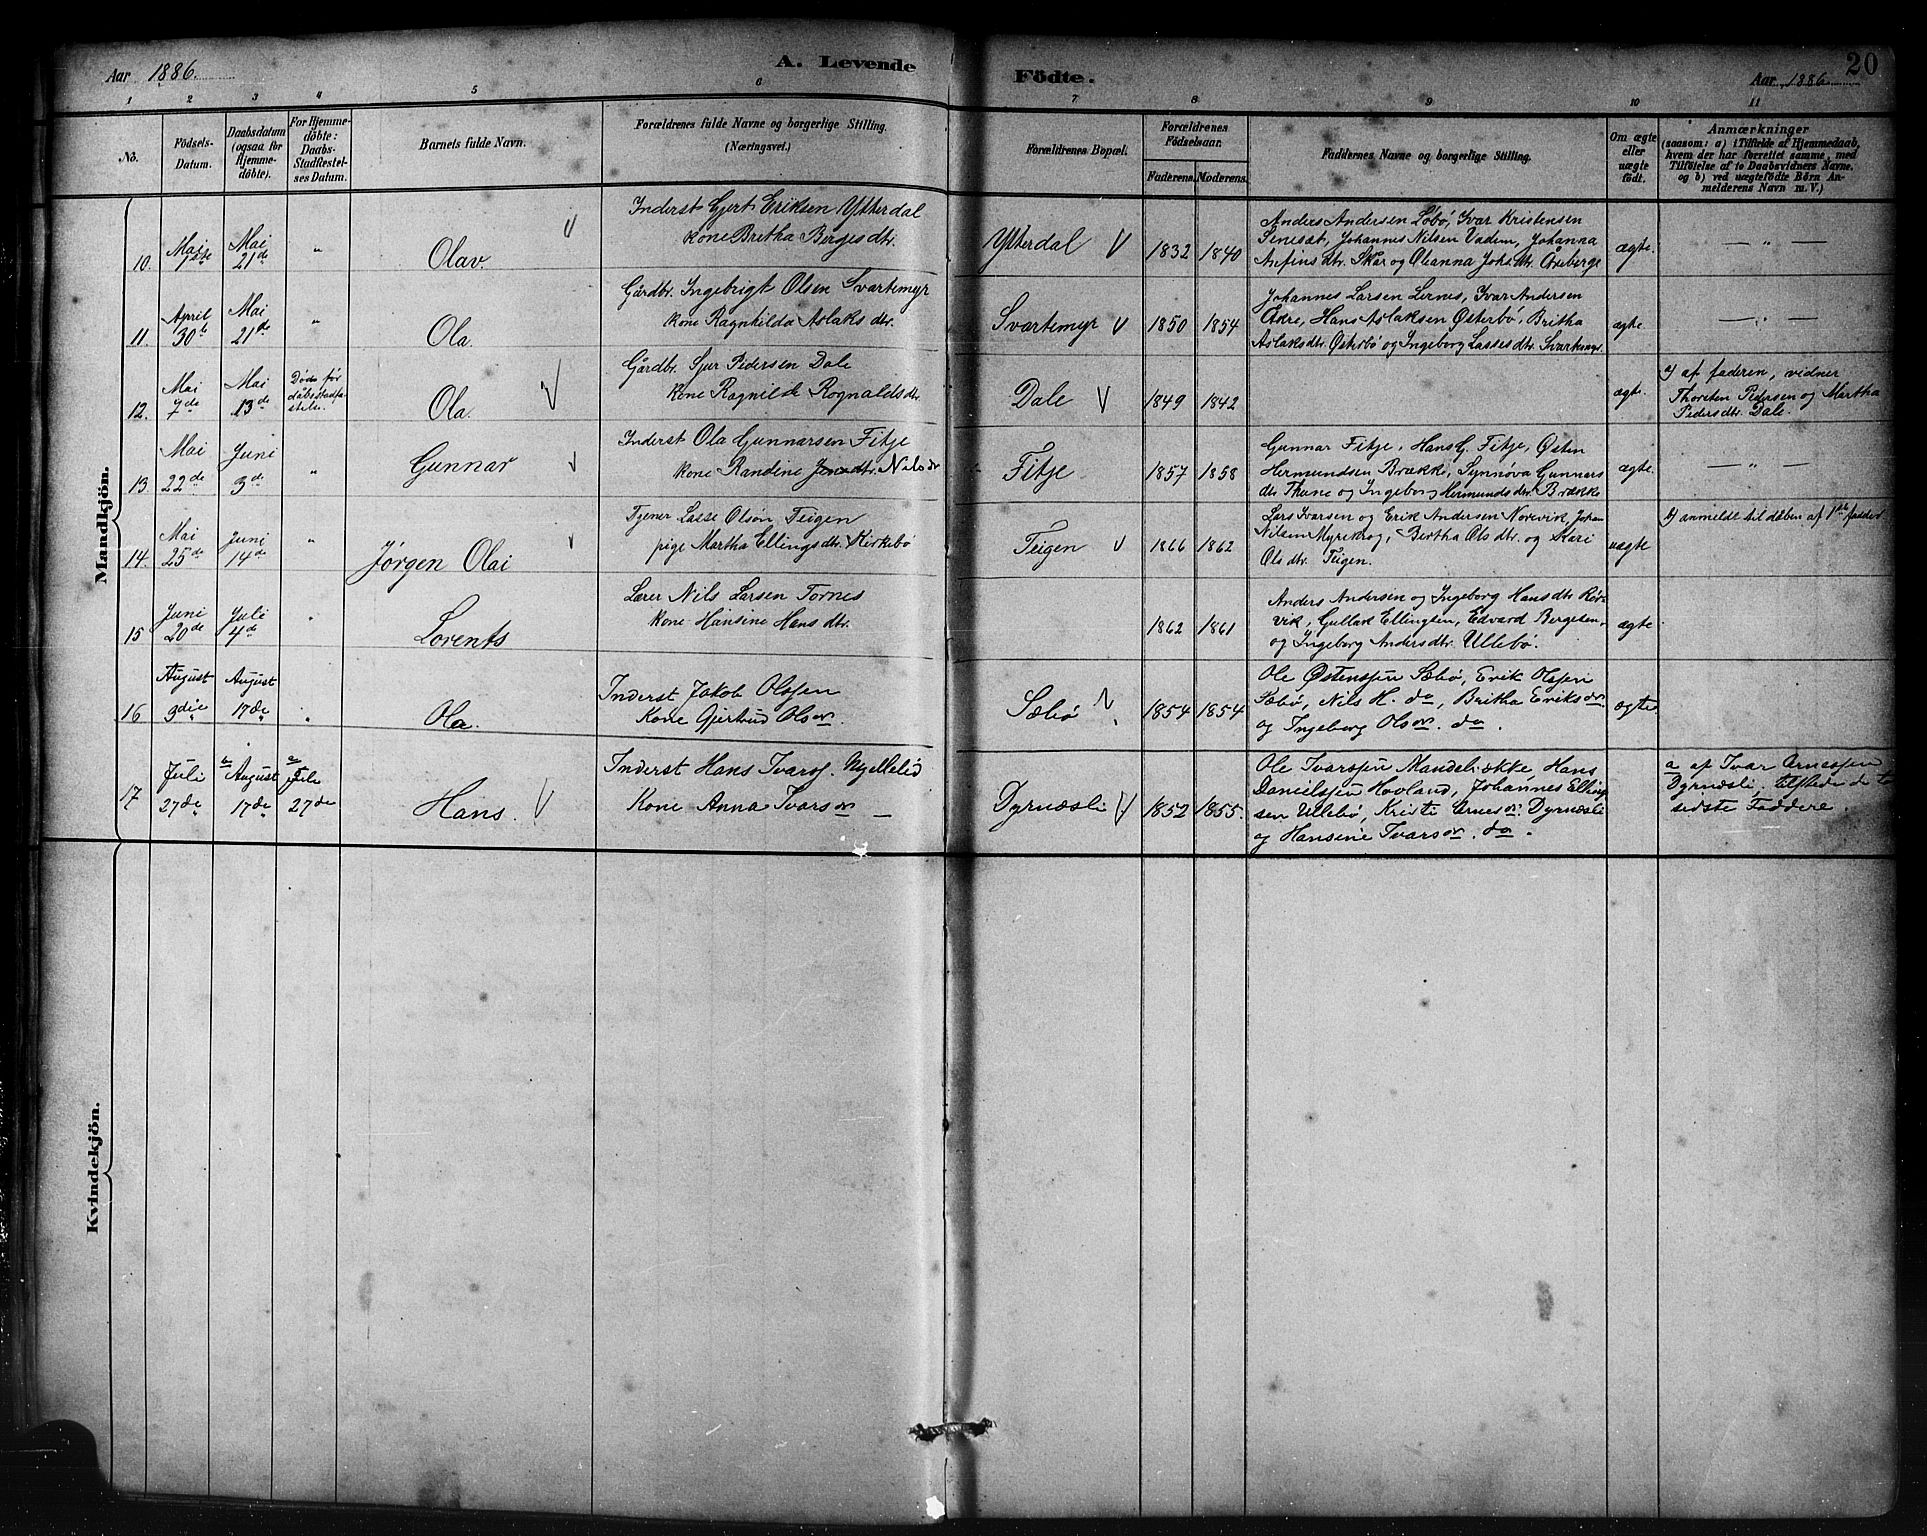 Aar 1886.
A. Levende
Födte.
Aar 1886
20
1 2 3 4 5 6 7 8 9 10 11
No.
Födsels-
Datum.
Daabsdatum
(ogsaa for
Hjemme-
döbte).
For Hjemme-
döbte:
Daabs-
Stadfæstel-
ses Datum.
Barnets fulde Navn.
Forældrenes fulde Navne og borgerlige Stilling.
(Næringsvei.)
Forældrenes Bopæl.
Forældrenes
Födselsaar.
Faderens. Moderens.
Faddernes Navne og borgerlige Stilling.
Om ægte
eller
uægte
födt.
Anmærkninger
(saasom: a) i Tilfælde af Hjemmedaab,
hvem der har forrettet samme, med
Tilföielse af to Daabsvidners Navne,
og b) ved uægtefödte Börn An-
melderens Navn m. V.)
Mandkjön.
10. Mai 1ste
Mai 21de
"
Olav.
Inderst Gjert Eriksen Ytterdal
kone Britha Bergesdtr.
Ytterdal
1832 1840
Andres Andersen Løbø, Ivar Kristensen
Senesæt, Johannes Nilsen Vadem, Johanna
Anfinsdtr. Skår og Olianna Johs.dtr. Åreberge
ægte.
— " —
11. April 30te
Mai 21de
"
Ola.
Gårdbr. Ingebrigt Olsen Svartemyr
kone Ragnhilda Aslaksdtr.
Svartemyr
1850 1854
Johannes Larsen Lernes, Ivar Andersen
Åkre, Hans Aslaksen Østerbø, Britha
Aslaksdtr. Østerbø og Ingeborg Lassesdtr. Svartemyr.
ægte.
— " —
12. Mai 7de
Mai 13de
Døde før
dåbsstadfæ-
stelse.
Ola.
Gårdbr. Sjur Pedersen Dale
kone Ragnilde Rognaldsdtr.
Dale
1849 1842
ægte.
a) af faderen, vidner
Thorsten Pedersen og Martha
Pedersdtr. Dale.
13. Mai 22de
Juni 3de
"
Gunnar
Inderst Ola Gunnarsen Fitje
kone Randine Jensdtr. Nilsdr
Fitje
1857 1858
Gunnar Fitje, Hans G. Fitje, Østen
Hermundsen Brække, Synnøva Gunnars
dtr Thune og Ingeborg Hermundsdtr. Brække
ægte.
— " —
14. Mai 25de
Juni 14de
"
Jørgen Olai
Tjener Lasse Olsøn Teigen
pige Martha Ellingsdtr. Kirkebø
Teigen
1866 1862
Lars Ivarsen og Erik Andersen Norevik, Johan
Nilsen Myrekrog, Bertha Olsdtr. og Kari
Olsdtr. Teigen.
uægte
b) anmeldt til dåben af 1ste fadder
15 Juni 20de
Juli 4de
"
Lorents
Lærer Nils Larsen Tornes
kone Hansine Hansdtr.
1862 1861
Anders Andersen og Ingeborg Hansdtr Rør-
vik, Gullak Ellingsen, Edvard Bergesen,
og Ingeborg Andersdtr. Ullebø.
ægte.
16 August 9die
August 17de
"
Ola.
Inderst Jakob Olssen
Kone Gjertrud Olsdr.
Sæbø
1854 1854
Ole Østenssen Sæbø, Erik Olssen
Sæbø, Nils H. do, Britha Eriksdr
og Ingeborg Olsdr. do.
ægte.
17 Juli 27de
b August 17de
a Juli 27de
Hans.
Inderst Hans Ivarss. Myllelid
Kone Anna Ivarsdr —
Dyrnæsli
1852 1855.
Ole Ivarssen Mandebrække, Hans
Danielssen Hovland, Johannes Elling
sen Ullebø, Kristi Arnesdr. Dyrnæsli
og Hansine Ivarsdr. do.
a af Ivar Arnessen
Dyrnæsli, tilstede de to
sidste Faddere.
Kvindekjön.